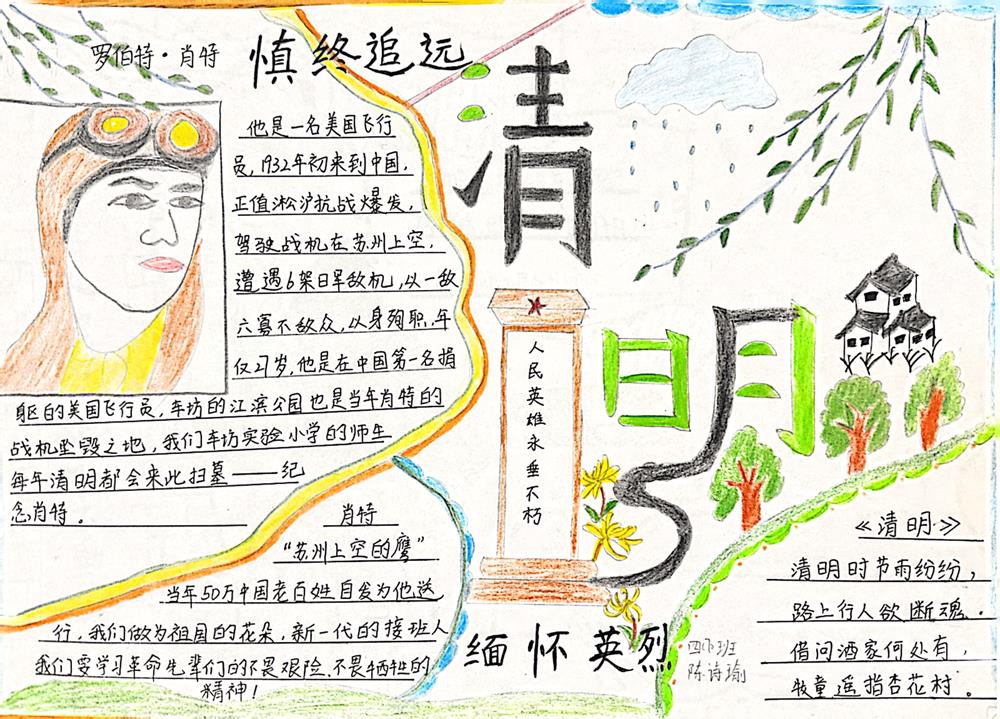 罗伯特·肖特
慎终追远
他是一名美国飞行
员,1932年初来到中国,
正值淞沪抗战爆发,
驾驶战机在苏州上空,
遭遇6架日军敌机,以一敌
六寡不敌众,以身殉职,年
仅27岁,他是在中国第一名捐
躯的美国飞行员,车坊的江滨公园也是当年肖特的
战机坠毁之地,我们车坊实验小学的师生
每年清明都会来此扫墓——纪
念肖特。
肖特
“苏州上空的鹰”
当年50万中国老百姓自发为他送
行,我们做为祖国的花朵,新一代的接班人
我们要学习革命先辈们的不畏艰险、不畏牺牲的
精神!
清
明
人民英雄永垂不朽
缅怀英烈
陈诗瑜
《清明》
清明时节雨纷纷,
路上行人欲断魂.
借问酒家何处有,
牧童遥指杏花村。